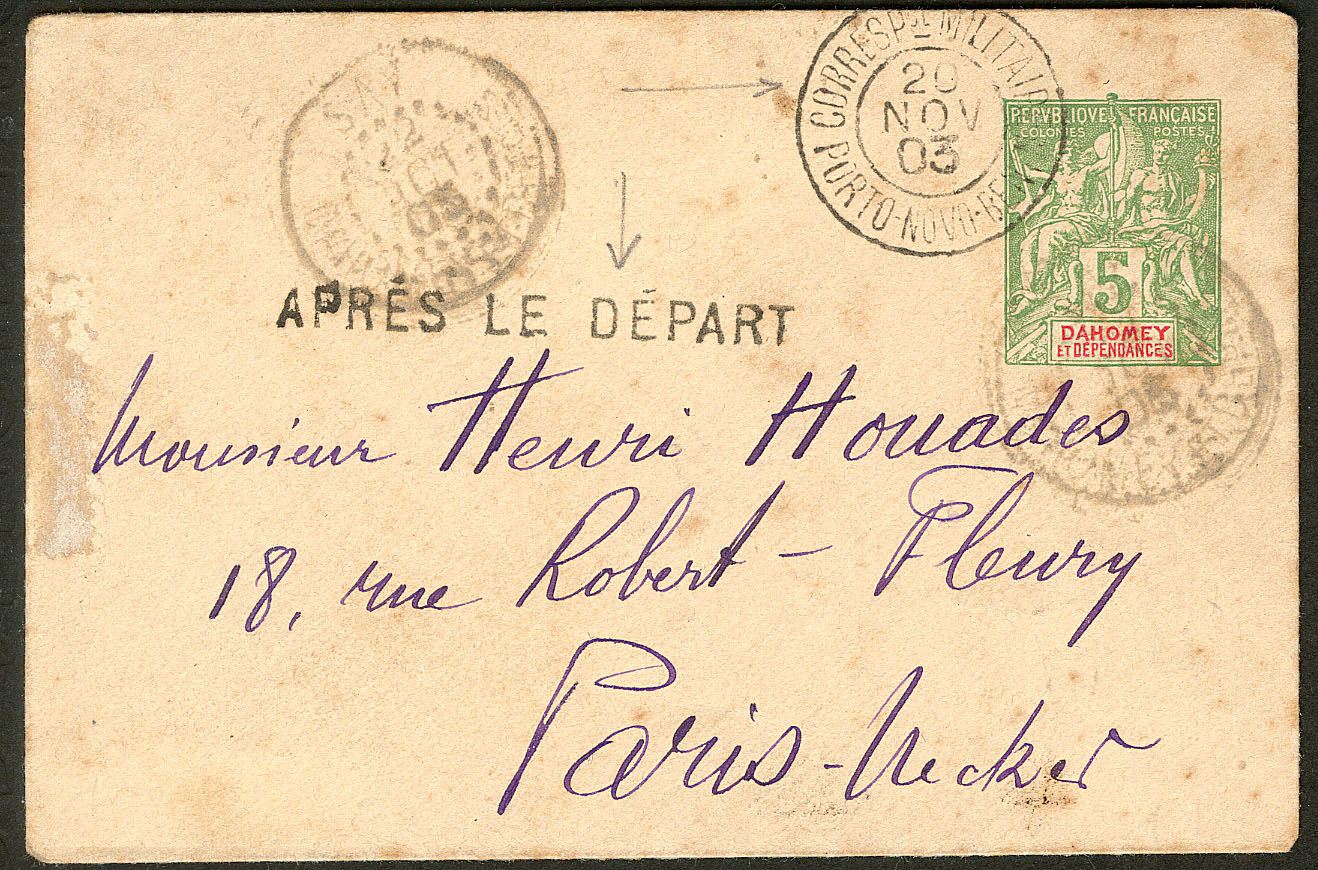 CORRESPCE MILITAIRE
29
NOV
03
PORTO-NOVO-BENIN
REPVBLIQVE FRANÇAISE
COLONIES POSTES
5
DAHOMEY
ET DÉPENDANCES
APRÉS LE DÉPART
Monsieur Henri Houades
18, rue Robert-Fleury
Paris-Necker